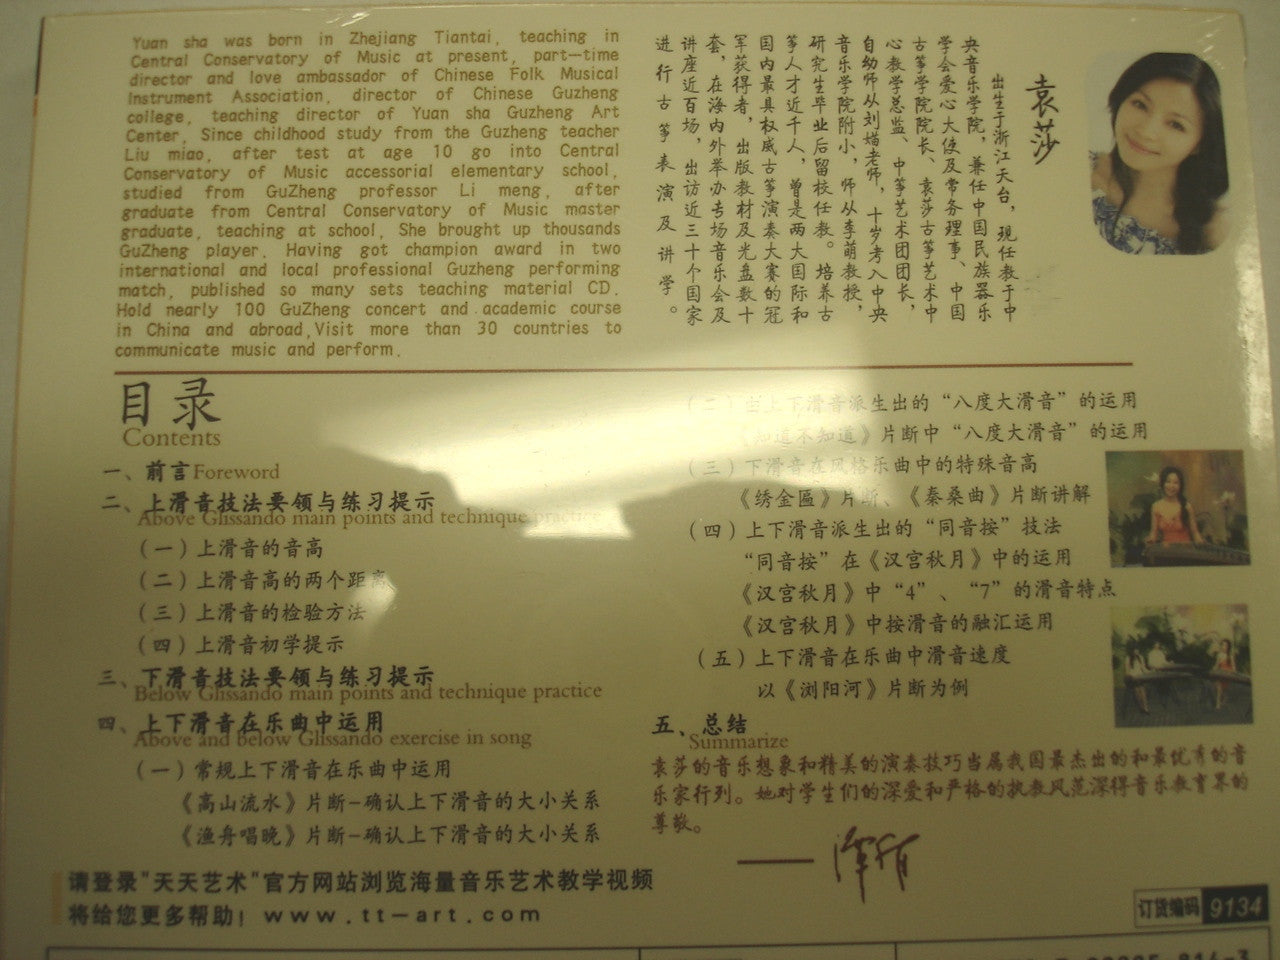 Yuan sha was born in Zhejiang Tiantai, teaching in
Central Conservatory of Music at present, part-time
director and love ambassador of Chinese Folk Musical
Instrument Association, director of Chinese Guzheng
college, teaching director of Yuan sha Guzheng Art
Center, Since childhood study from the Guzheng teacher
Liu miao, after test at age 10 go into Central
Conservatory of Music accessorial elementary school,
studied from GuZheng professor Li meng, after
graduate from Central Conservatory of Music master
graduate, teaching at school, She brought up thousands
GuZheng player. Having got champion award in two
international and local professional Guzheng performing
match, published so many sets teaching material CD.
Hold nearly 100 GuZheng concert and academic course
in China and abroad,Visit more than 30 countries to
communicate music and perform.
袁莎
出生于浙江天台，现任教于中
央音乐学院，兼任中国民族器乐
学会爱心大使及常务理事、中国
古筝学院院长、袁莎古筝艺术中
心教学总监、中筝艺术团团长，
自幼师从刘嫹老师，十岁考入中央
音乐学院附小，师从李萌教授，
研究生毕业后留校任教。培养古
筝人才近千人，曾是两大国际和
国内最具权威古筝演奏大赛的冠
军获得者，出版教材及光盘数十
套，在海内外举办专场音乐会及
讲座近百场，出访近三十个国家
进行古筝表演及讲学。
目录
Contents
一、前言Foreword
二、上滑音技法要领与练习提示
Above Glissando main points and technique practice
（一）上滑音的音高
（二）上滑音高的两个距离
（三）上滑音的检验方法
（四）上滑音初学提示
三、下滑音技法要领与练习提示
Below Glissando main points and technique practice
四、上下滑音在乐曲中运用
Above and below Glissando exercise in song
（一）常规上下滑音在乐曲中运用
《高山流水》片断-确认上下滑音的大小关系
《渔舟唱晚》片断-确认上下滑音的大小关系
（二）由上下滑音派生出的“八度大滑音”的运用
《知道不知道》片断中“八度大滑音”的运用
（三）下滑音在风格乐曲中的特殊音高
《绣金匾》片断、《秦桑曲》片断讲解
（四）上下滑音派生出的“同音按”技法
“同音按”在《汉宫秋月》中的运用
《汉宫秋月》中“4”、“7”的滑音特点
《汉宫秋月》中按滑音的融汇运用
（五）上下滑音在乐曲中滑音速度
以《浏阳河》片断为例
五、总结
Summarize
袁莎的音乐想象和精美的演奏技巧当属我国最杰出的和最优秀的音
乐家行列。她对学生们的深爱和严格的执教风范深得音乐教育界的
尊敬。
请登录"天天艺术"官方网站浏览海量音乐艺术教学视频
将给您更多帮助! www.tt-art.com
订货编码 9134